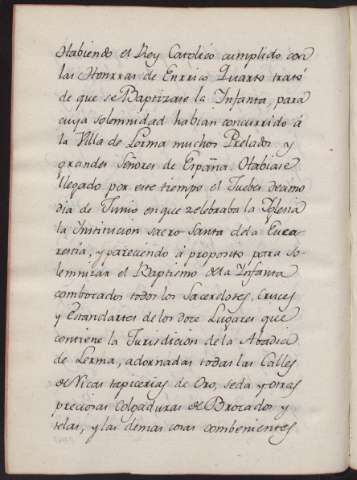 Habiendo el Rey Catolico cumplido con
las Honrras de Enrrico Quarto trató
de que se Baptizase la Infanta, para
cuya solemnidad habian concurrido á
la Villa de Lerma muchos Prelados y
grandes Señores de España. Habiase
llegado por este tiempo el Jueves decimo
dia de Junio en que zelebraba la Yglesia
la Institucion sacro Santa de la Euca-
restia, y pareciendo á proposito para so-
lemnizar el Baptismo de la Infanta
combocados todos los Sacerdotes, Cruces
y Estandartes de los doce Lugares que
contiene la Jurisdicion de la Abadia
de Lerma, adornadas todas las Calles
de Ricas tapicerias de Oro, seda y otras
preciosas Colgaduras de Brocados y
telas, y las demas cosas combenientes